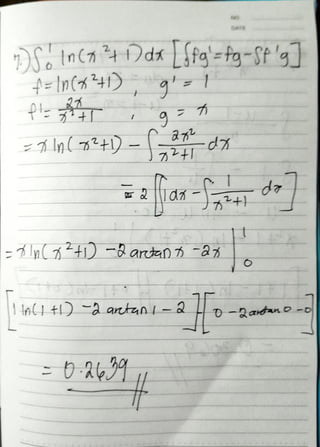 NO.
DATE
7.) ∫₀¹ ln(x²+1)dx [∫fg' = fg - ∫f'g]
f = ln(x²+1) , g' = 1
f' = 2x/x²+1 , g = x
= x ln(x²+1) - ∫ 2x²/x²+1 dx
= 2 [∫1dx - ∫ 1/x²+1 dx]
= x ln(x²+1) - 2 arctan x - 2x |₀¹
[1 ln(1+1) - 2 arctan 1 - 2] - [0 - 2 arctan 0 - 0]
= 0.2639 //